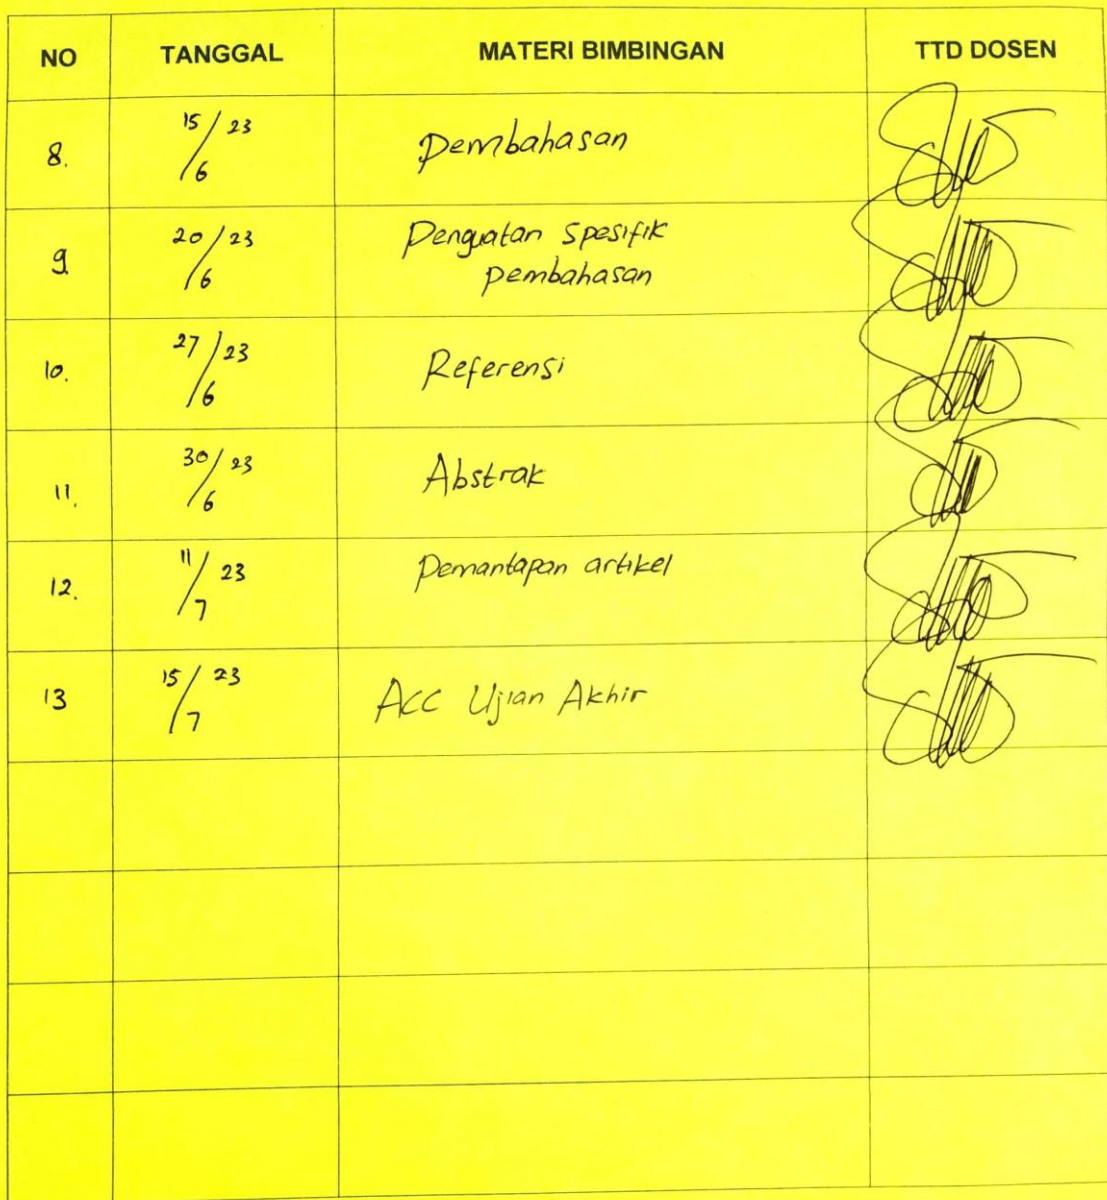 NO TANGGAL MATERI BIMBINGAN TTD DOSEN
8. 15/6 23 Pembahasan
9. 20/6 23 Penguatan spesifik
pembahasan
10. 27/6 23 Referensi
11. 30/6 23 Abstrak
12. 11/7 23 Pemantapan artikel
13 15/7 23 Acc Ujian Akhir